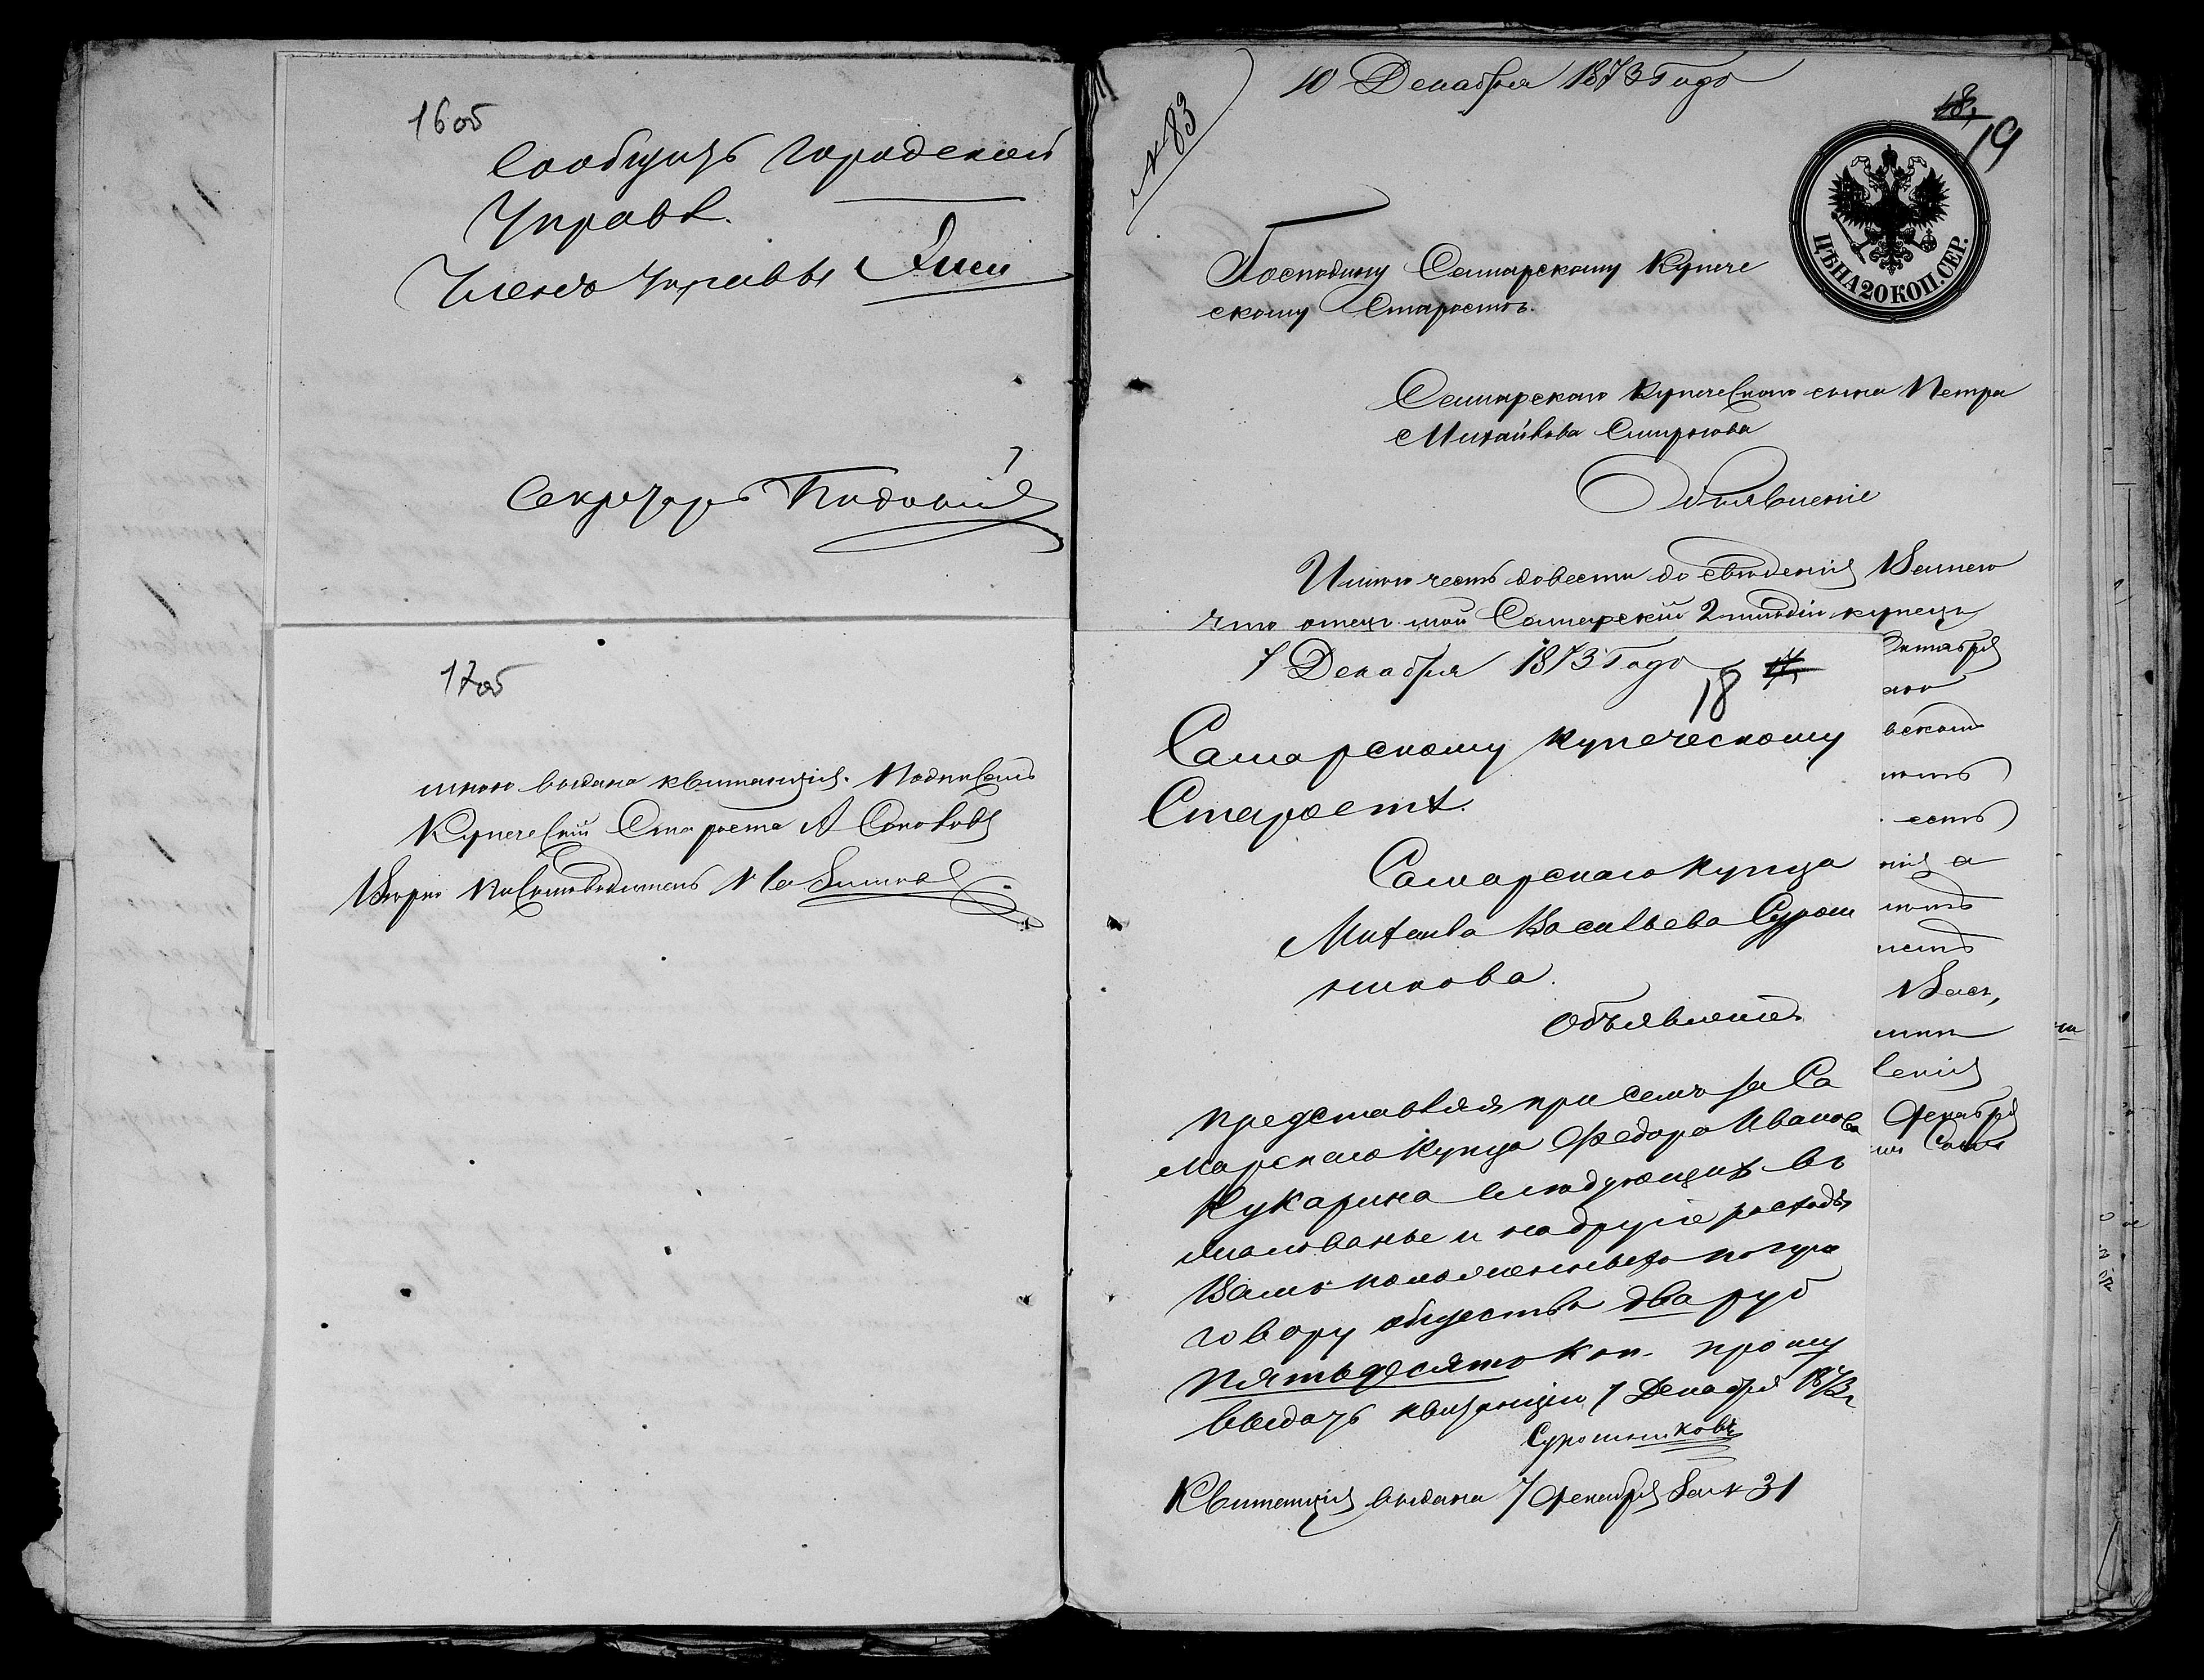 16 об
Сообщить городской
Управѣ.
Членъ Управы
Секретарь
17 об
мною выдана квитанція. Подписалъ
Купеческій Староста А Соколовъ
Вѣрно Письмоводитель
10 Декабря 1873 Года
№ 83
18,
19
ЦѢНА 20 КОП. СЕР.
Господину Самарскому Купече
скому Старостѣ.
Самарскаго Купеческаго сына Петра
Михайлова Смирнова
Объявленіе
Имѣю честь довести до свѣденія Вашего
что отецъ мой Самарскій 2 гильдіи купецъ
7 Декабря 1873 Года
18 17,
Самарскому купеческому
Старостѣ.
Самарскаго купца
Михаила Васильева Сурош
никова.
Объявленіе
Представляя при семъ за Са
марскаго Купца Федора Иванова
Кукарина слѣдующихъ въ
жалованье и на другіе расходы
Вамъ положенныхъ по приго
говору общества два руб
пятьдесятъ коп. прошу
выдать квитанцію 7 Декабря 1873 г
Сурошниковъ
Квитанція выдана 7 Декабря за № 31
Октября
Васъ,
Декабря